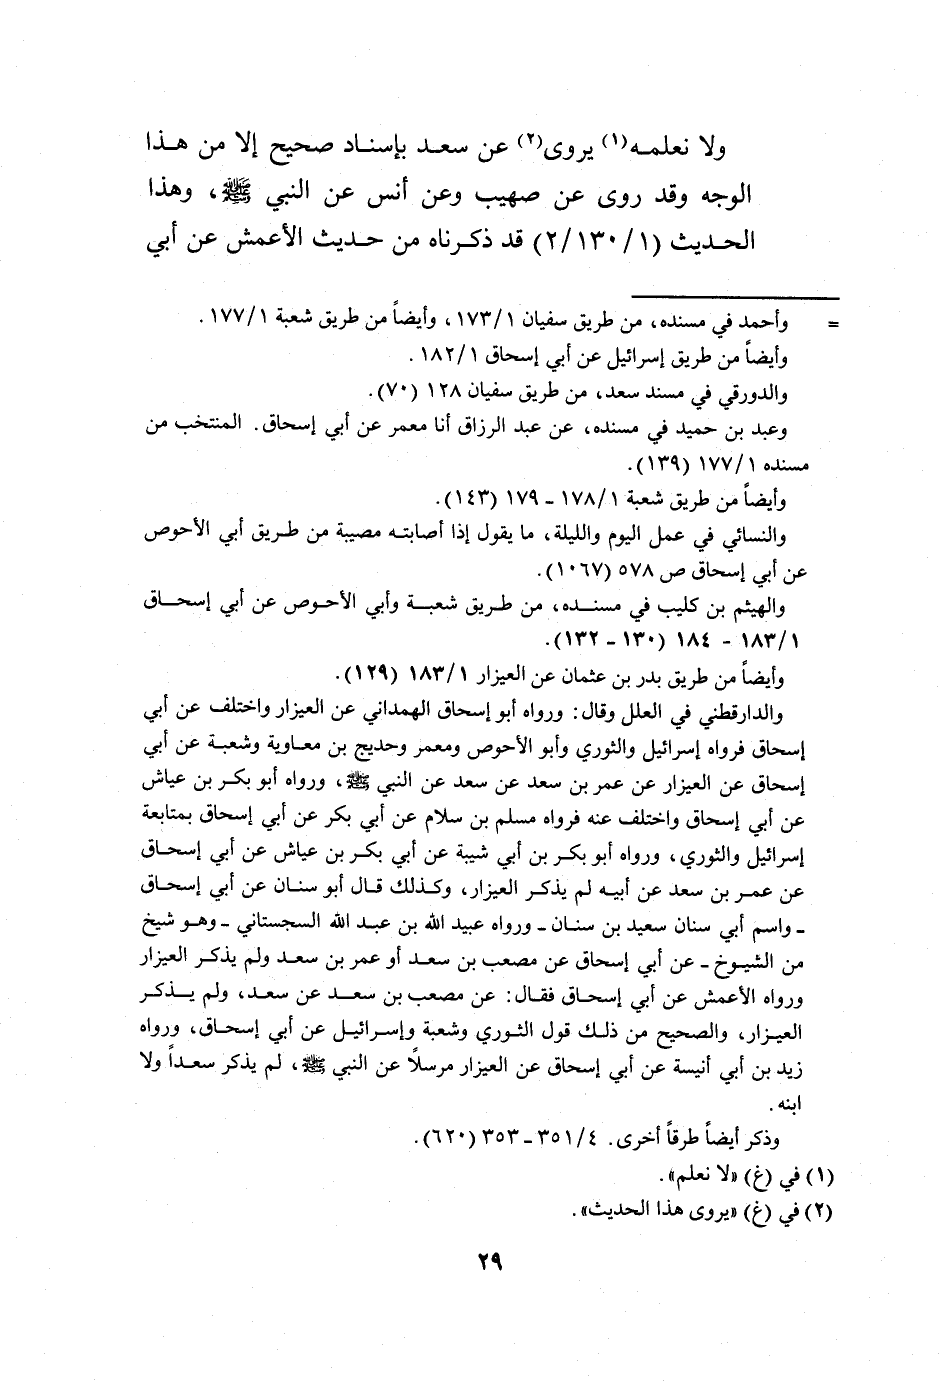 ولا نعلمه(١) يروى(٢) عن سعد بإسناد صحيح إلا من هذا
الوجه وقد روى عن صهيب وعن أنس عن النبي ﷺ، وهذا
الحديث (٢/١٣٠/١) قد ذكرناه من حديث الأعمش عن أبي
= وأحمد في مسنده، من طريق سفيان ١٧٣/١، وأيضاً من طريق شعبة ١٧٧/١.
وأيضاً من طريق إسرائيل عن أبي إسحاق ١٨٢/١.
والدورقي في مسند سعد، من طريق سفيان ١٢٨ (٧٠).
وعبد بن حميد في مسنده، عن عبد الرزاق أنا معمر عن أبي إسحاق. المنتخب من
مسنده ١٧٧/١ (١٣٩).
وأيضاً من طريق شعبة ١٧٨/١ - ١٧٩ (١٤٣).
والنسائي في عمل اليوم والليلة، ما يقول إذا أصابته مصيبة من طريق أبي الأحوص
عن أبي إسحاق ص ٥٧٨ (١٠٦٧).
والهيثم بن كليب في مسنده، من طريق شعبة وأبي الأحوص عن أبي إسحاق
١٨٣/١ - ١٨٤ (١٣٠ - ١٣٢).
وأيضاً من طريق بدر بن عثمان عن العيزار ١٨٣/١ (١٢٩).
والدارقطني في العلل وقال: ورواه أبو إسحاق الهمداني عن العيزار واختلف عن أبي
إسحاق فرواه إسرائيل والثوري وأبو الأحوص ومعمر وحديج بن معاوية وشعبة عن أبي
إسحاق عن العيزار عن عمر بن سعد عن سعد عن النبي ﷺ، ورواه أبو بكر بن عياش
عن أبي إسحاق واختلف عنه فرواه مسلم بن سلام عن أبي بكر عن أبي إسحاق بمتابعة
إسرائيل والثوري، ورواه أبو بكر بن أبي شيبة عن أبي بكر بن عياش عن أبي إسحاق
عن عمر بن سعد عن أبيه لم يذكر العيزار، وكذلك قال أبو سنان عن أبي إسحاق
- واسم أبي سنان سعيد بن سنان - ورواه عبيد الله بن عبد الله السجستاني - وهو شيخ
من الشيوخ - عن أبي إسحاق عن مصعب بن سعد أو عمر بن سعد ولم يذكر العيزار
ورواه الأعمش عن أبي إسحاق فقال: عن مصعب بن سعد عن سعد، ولم يذكر
العيزار، والصحيح من ذلك قول الثوري وشعبة وإسرائيل عن أبي إسحاق، ورواه
زيد بن أبي أنيسة عن أبي إسحاق عن العيزار مرسلاً عن النبي ﷺ، لم يذكر سعداً ولا
ابنه.
وذكر أيضاً طرقاً أخرى. ٣٥١/٤ - ٣٥٣ (٦٢٠).
(١) في (غ) «لا نعلم».
(٢) في (غ) «يروى هذا الحديث».
٢٩